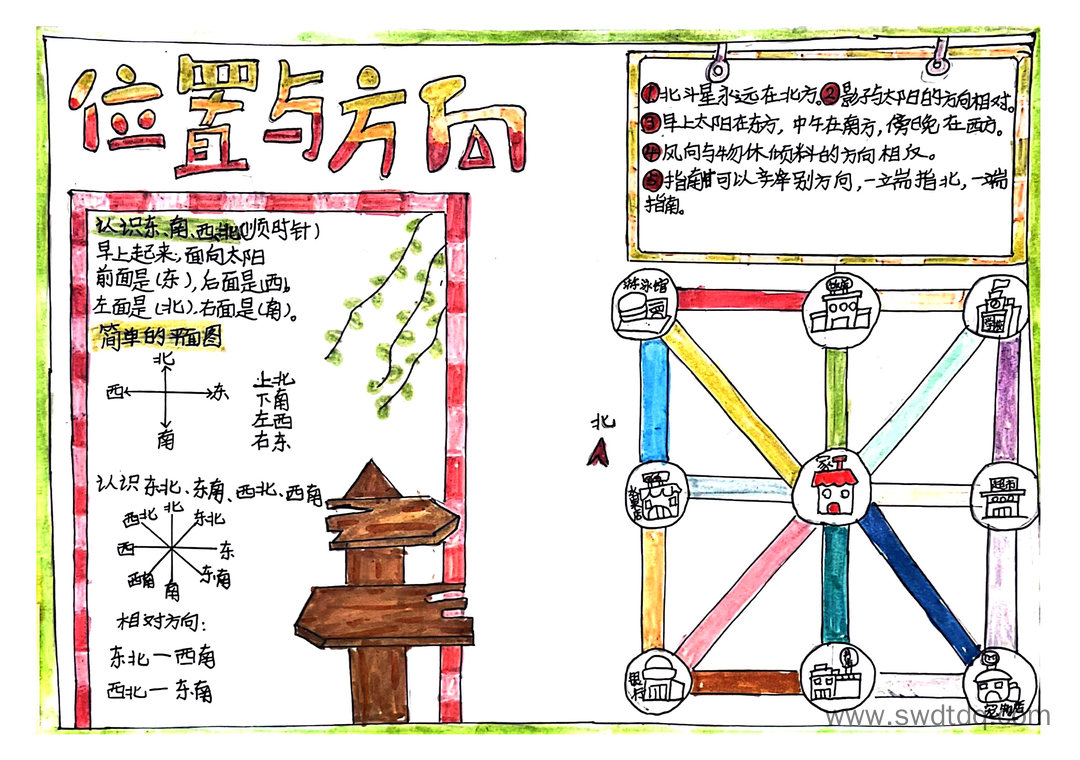 位置与方向
认识东、南、西、北(顺时针)
早上起来,面向太阳
前面是(东),后面是(西),
左面是(北),右面是(南)。
简单的平面图
北
西 东
南
上北
下南
左西
右东
认识东北、东南、西北、西南
西北 北 东北
西 东
西南 南 东南
相对方向:
东北—西南
西北—东南
①北斗星永远在北方。②影子与太阳的方向相对。
③早上太阳在东方,中午在南方,傍晚在西方。
④风向与物体倾斜的方向相反。
⑤指南针可以辛痒别方向,一立端指北,一端
指南。
游泳馆
学校
北
家
超市
银行
宠物店
www.swdtdq.com